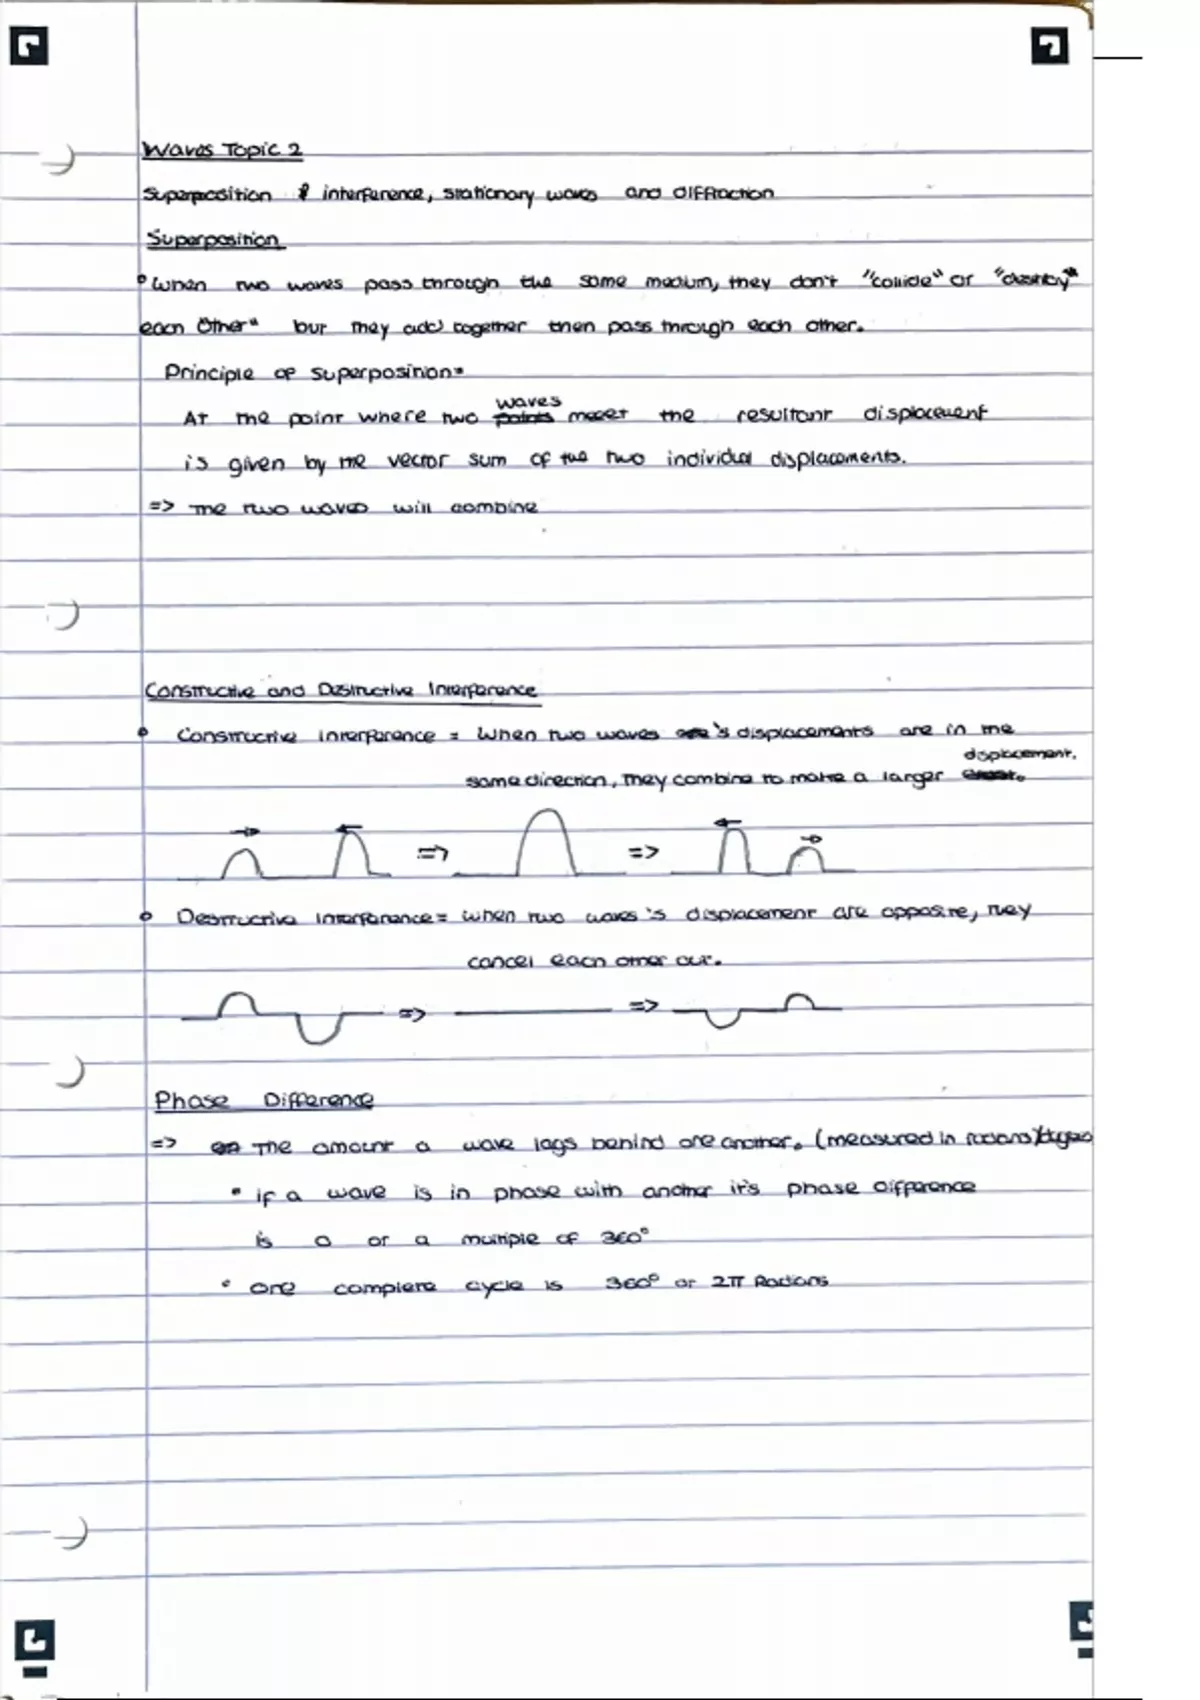 Waves Topic 2
Superposition & interference, stationary waves and diffraction
Superposition
When two waves pass through the same medium, they don't "collide" or "destroy"
each other" but they add together then pass through each other.
Principle of superposition=
At the point where two waves meet the resultant displacement
is given by the vector sum of the two individual displacements.
=> The two waves will combine
Constructive and Destructive Interference
Constructive interference = When two waves 's displacements are in the
same direction, they combine to make a larger displacement.
=> =>
Destructive Interference = when two waves 's displacement are opposite, they
cancel each other out.
=> =>
Phase Difference
=> The amount a wave lags behind one another. (measured in radians)
• if a wave is in phase with another it's phase difference
is 0 or a multiple of 360°
• one complete cycle is 360° or 2π Radians